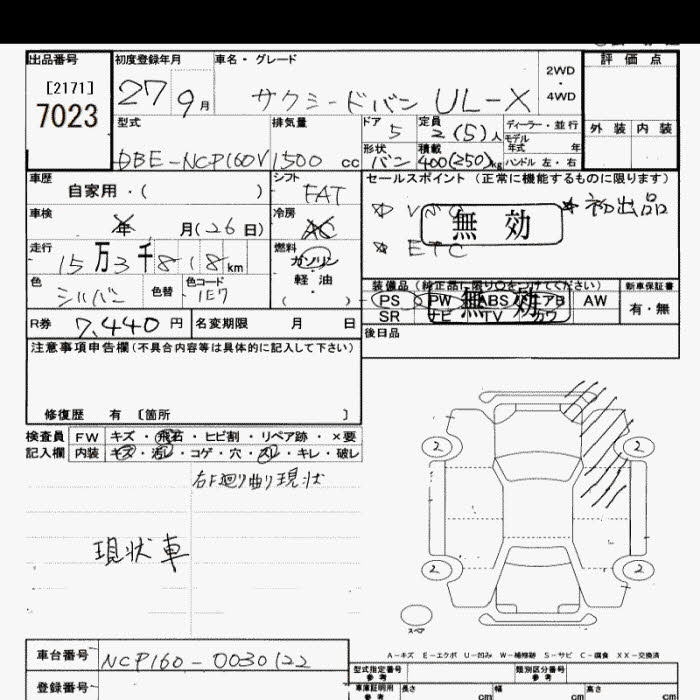 出品番号
初度登録年月
車名・グレード
2WD
・
4WD
評価点
[2171]
7023
27 9月
サクシードバン UL-X
外装 内装
型式
DBE-NCP160V
排気量
1500 cc
ドア
5
定員
2(5)人
ディーラー・並行
モデル
年式 年
形状
バン
積載
400(250)kg
ハンドル 左・右
車歴
自家用・( )
シフト
FAT
セールスポイント (正常に機能するものに限ります)
無効
初出品
ETC
車検
年 月(26日)
冷房
AC
走行
15万3千818km
燃料
ガソリン
・
軽油
( )
色
シルバー
色替
色コード
1E7
装備品 (純正品に限り○をつけてください)
新車保証書
PS PW ABS エアB AW
無効
SR ナビ TV カワ
有・無
R券
7,440円
名変期限 月 日
後日品
注意事項申告欄(不具合内容等は具体的に記入して下さい)
修復歴 有 〔箇所 〕
検査員
記入欄
FW キズ・飛石・ヒビ割・リペア跡・×要
内装 キズ・汚レ・コゲ・穴・スレ・キレ・破レ
右F廻り曲り現状
現状車
2 2
2 2
スペア
A-キズ E-エクボ U-凹み W-補修跡 S-サビ C-腐食 XX-交換済
車台番号
NCP160-0030122
登録番号
型式指定番号
参考
類別区分番号
参考
車庫証明用
参考
長さ cm
幅 cm
高さ cm